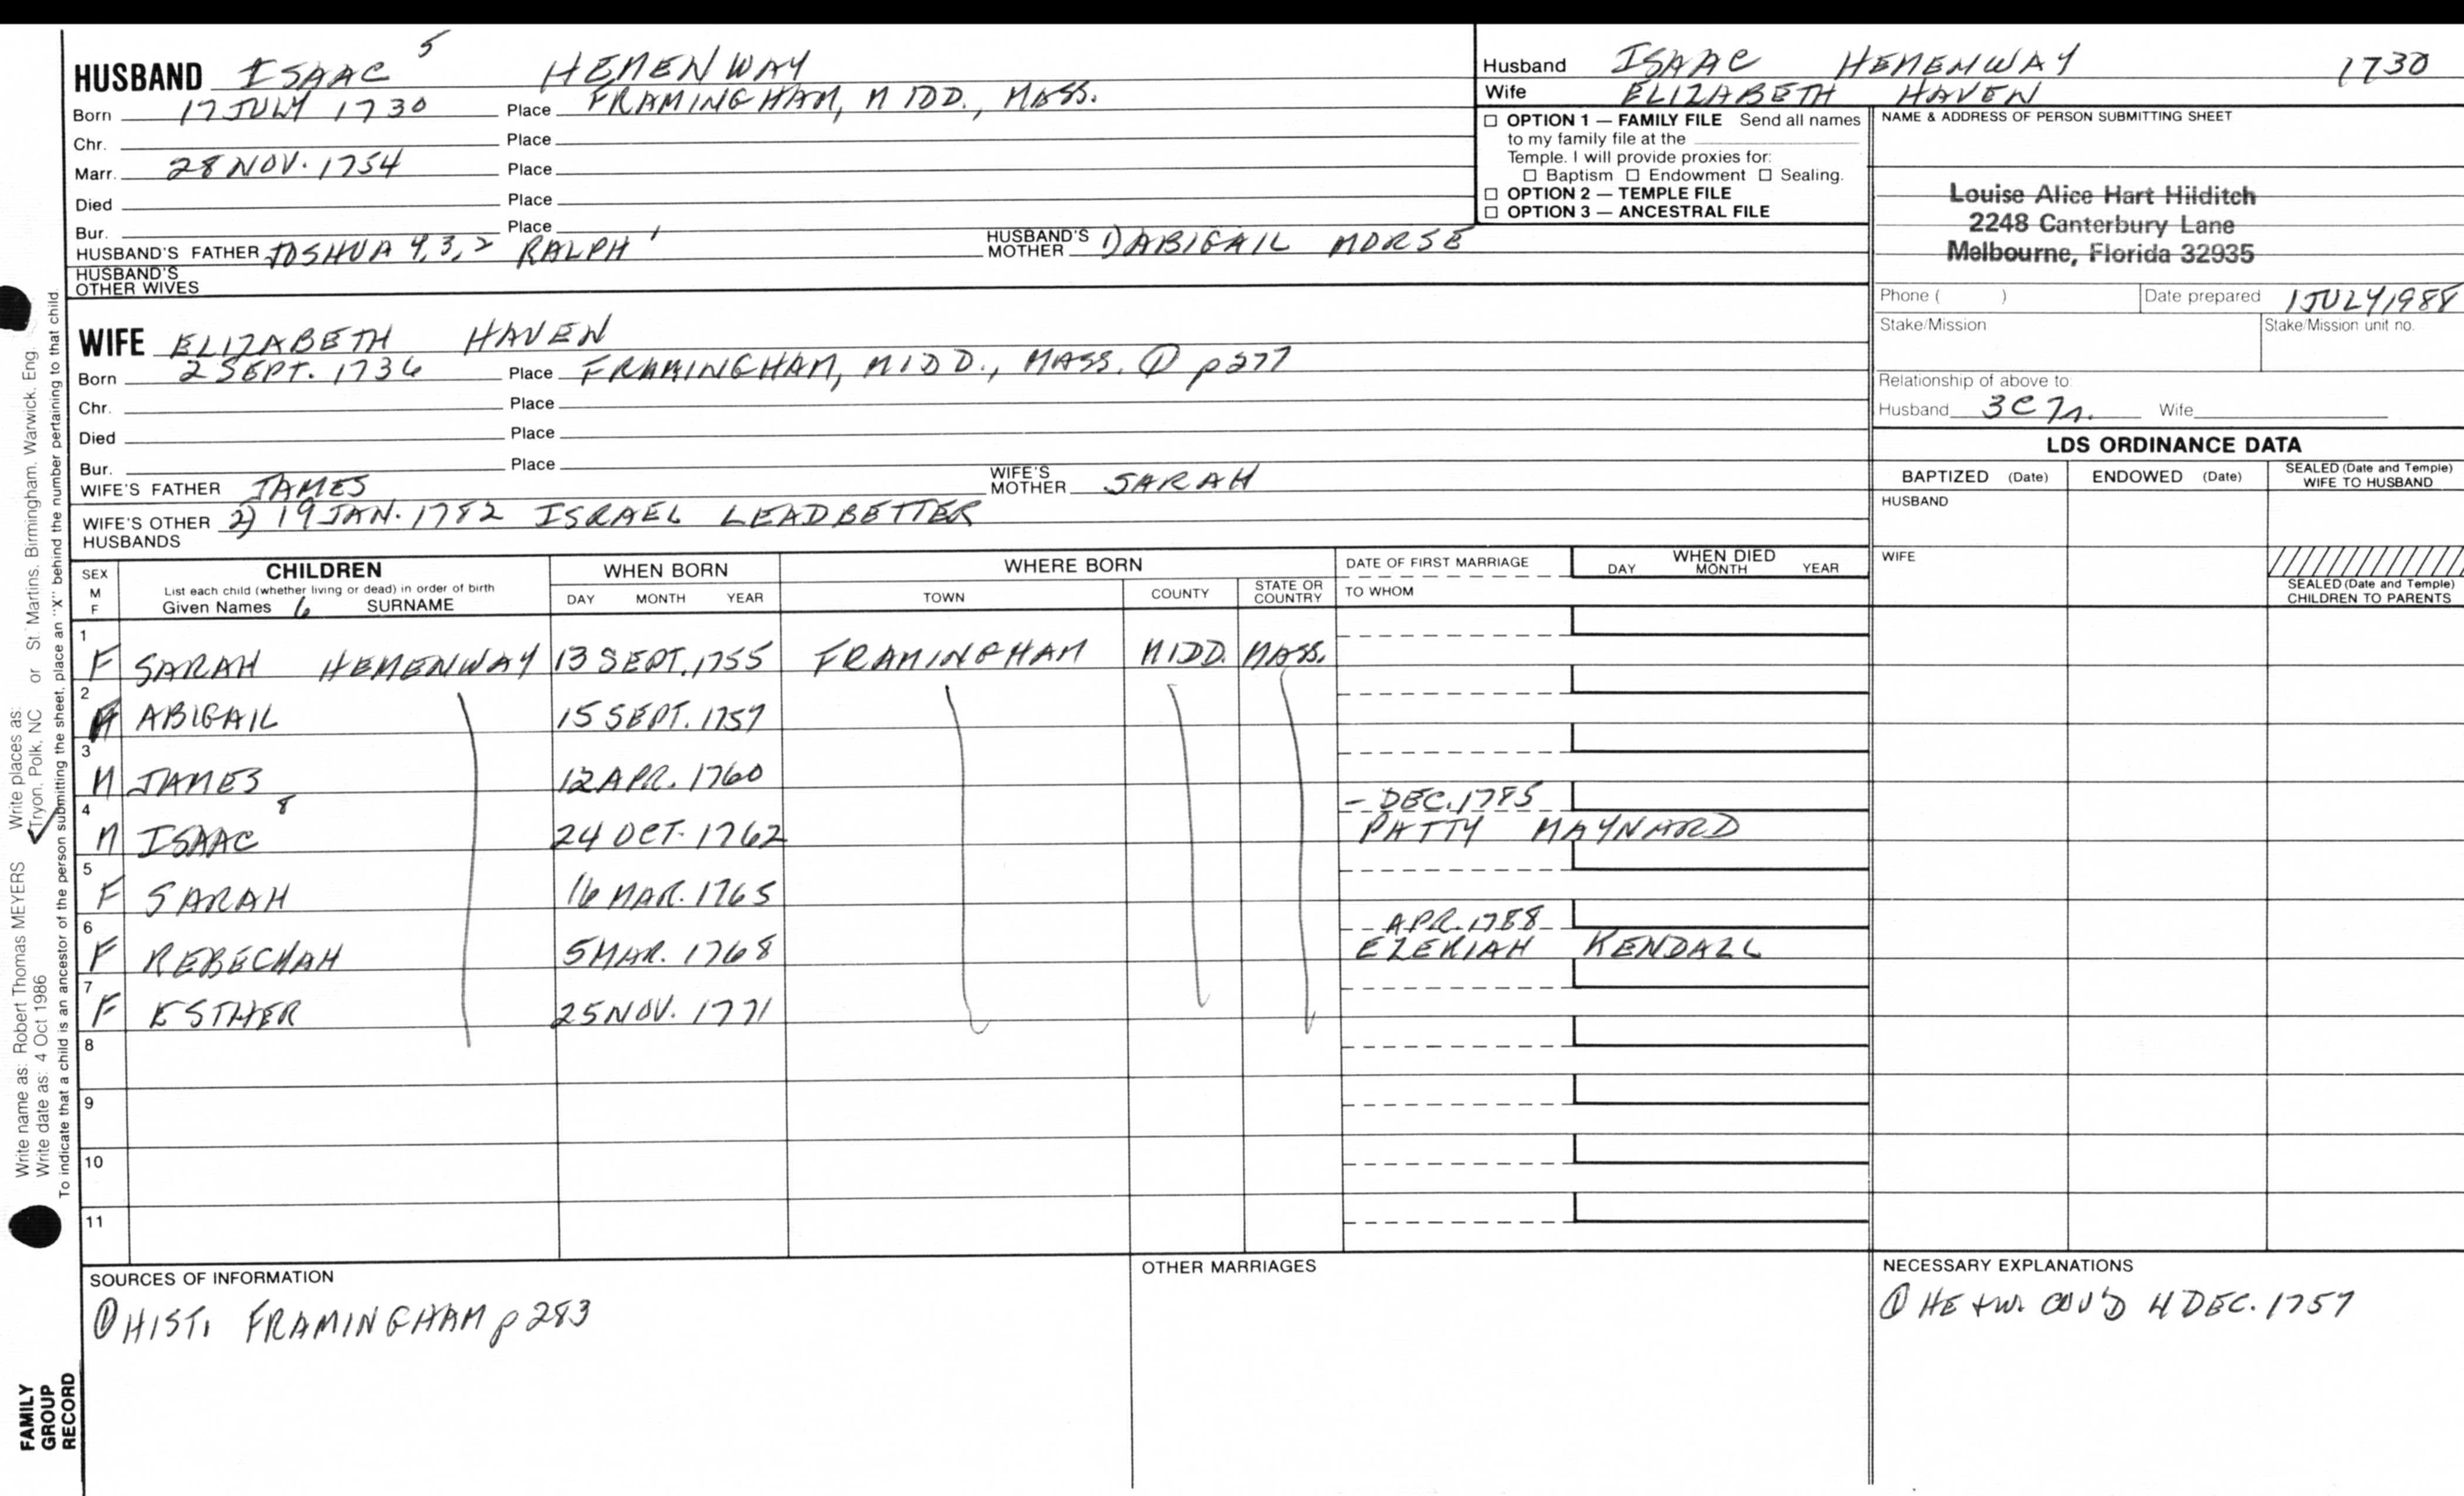 HUSBAND ISAAC 5 HEMENWAY
Born 17 JULY 1730 Place FRAMINGHAM, MIDD., MASS.
Chr. Place
Marr. 28 NOV. 1754 Place
Died Place
Bur. Place
HUSBAND'S FATHER JOSHUA 4,3,2 RALPH 1 HUSBAND'S MOTHER 1) ABIGAIL MORSE
HUSBAND'S OTHER WIVES
WIFE ELIZABETH HAVEN
Born 2 SEPT. 1736 Place FRAMINGHAM, MIDD., MASS. ① p277
Chr. Place
Died Place
Bur. Place
WIFE'S FATHER JAMES WIFE'S MOTHER SARAH
WIFE'S OTHER HUSBANDS 2) 19 JAN. 1782 ISRAEL LEADBETTER
Husband ISAAC HEMENWAY 1730
Wife ELIZABETH HAVEN
☐ OPTION 1 — FAMILY FILE Send all names
to my family file at the
Temple. I will provide proxies for:
☐ Baptism ☐ Endowment ☐ Sealing.
☐ OPTION 2 — TEMPLE FILE
☐ OPTION 3 — ANCESTRAL FILE
NAME & ADDRESS OF PERSON SUBMITTING SHEET
Louise Alice Hart Hilditch
2248 Canterbury Lane
Melbourne, Florida 32935
Phone ( ) Date prepared 1 JULY 1988
Stake/Mission Stake/Mission unit no.
Relationship of above to:
Husband 3C7r. Wife
LDS ORDINANCE DATA
BAPTIZED (Date) ENDOWED (Date) SEALED (Date and Temple) WIFE TO HUSBAND
HUSBAND
WIFE
SEALED (Date and Temple)
CHILDREN TO PARENTS
SEX M F CHILDREN WHEN BORN WHERE BORN DATE OF FIRST MARRIAGE WHEN DIED
List each child (whether living or dead) in order of birth
Given Names 6 SURNAME DAY MONTH YEAR TOWN COUNTY STATE OR COUNTRY TO WHOM DAY MONTH YEAR
1 F SARAH HEMENWAY 13 SEPT. 1755 FRAMINGHAM MIDD. MASS.
2 ABIGAIL 15 SEPT. 1757
3 M JAMES 12 APR. 1760
4 M ISAAC 8 24 OCT. 1762 – DEC. 1785
PATTY MAYNARD
5 F SARAH 16 MAR. 1765
6 F REBECHAH 5 MAR. 1768 APR. 1788
EZEKIAH KENDALL
7 F ESTHER 25 NOV. 1771
8
9
10
11
SOURCES OF INFORMATION
① HIST. FRAMINGHAM p283
OTHER MARRIAGES
NECESSARY EXPLANATIONS
① HE + w. COV'D 4 DEC. 1757
Write name as: Robert Thomas MEYERS Write places as:
Write date as: 4 Oct 1986 ✓ Tryon, Polk, NC or St. Martins, Birmingham, Warwick, Eng.
To indicate that a child is an ancestor of the person submitting the sheet, place an "X" behind the number pertaining to that child.
FAMILY
GROUP
RECORD